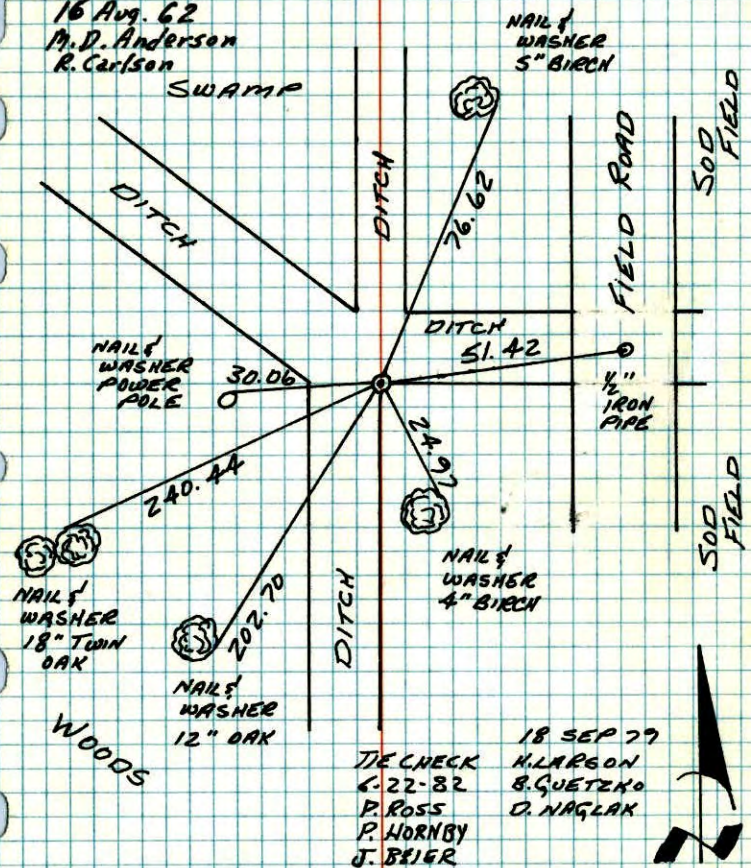 16 Aug. 62
M.D. Anderson
R. Carlson
SWAMP
NAIL &
WASHER
5" BIRCH
DITCH
DITCH
76.62
FIELD ROAD
SOD
FIELD
DITCH
51.42
1/2"
IRON
PIPE
NAIL &
WASHER
POWER
POLE
30.06
24.97
240.44
NAIL &
WASHER
4" BIRCH
SOD
FIELD
NAIL &
WASHER
18" TWIN
OAK
202.70
DITCH
NAIL &
WASHER
12" OAK
WOODS
TIE CHECK
6-22-82
P. ROSS
P. HORNBY
J. BEIER
18 SEP 79
K. LARSON
B. GUETZKO
D. NAGLAK
N